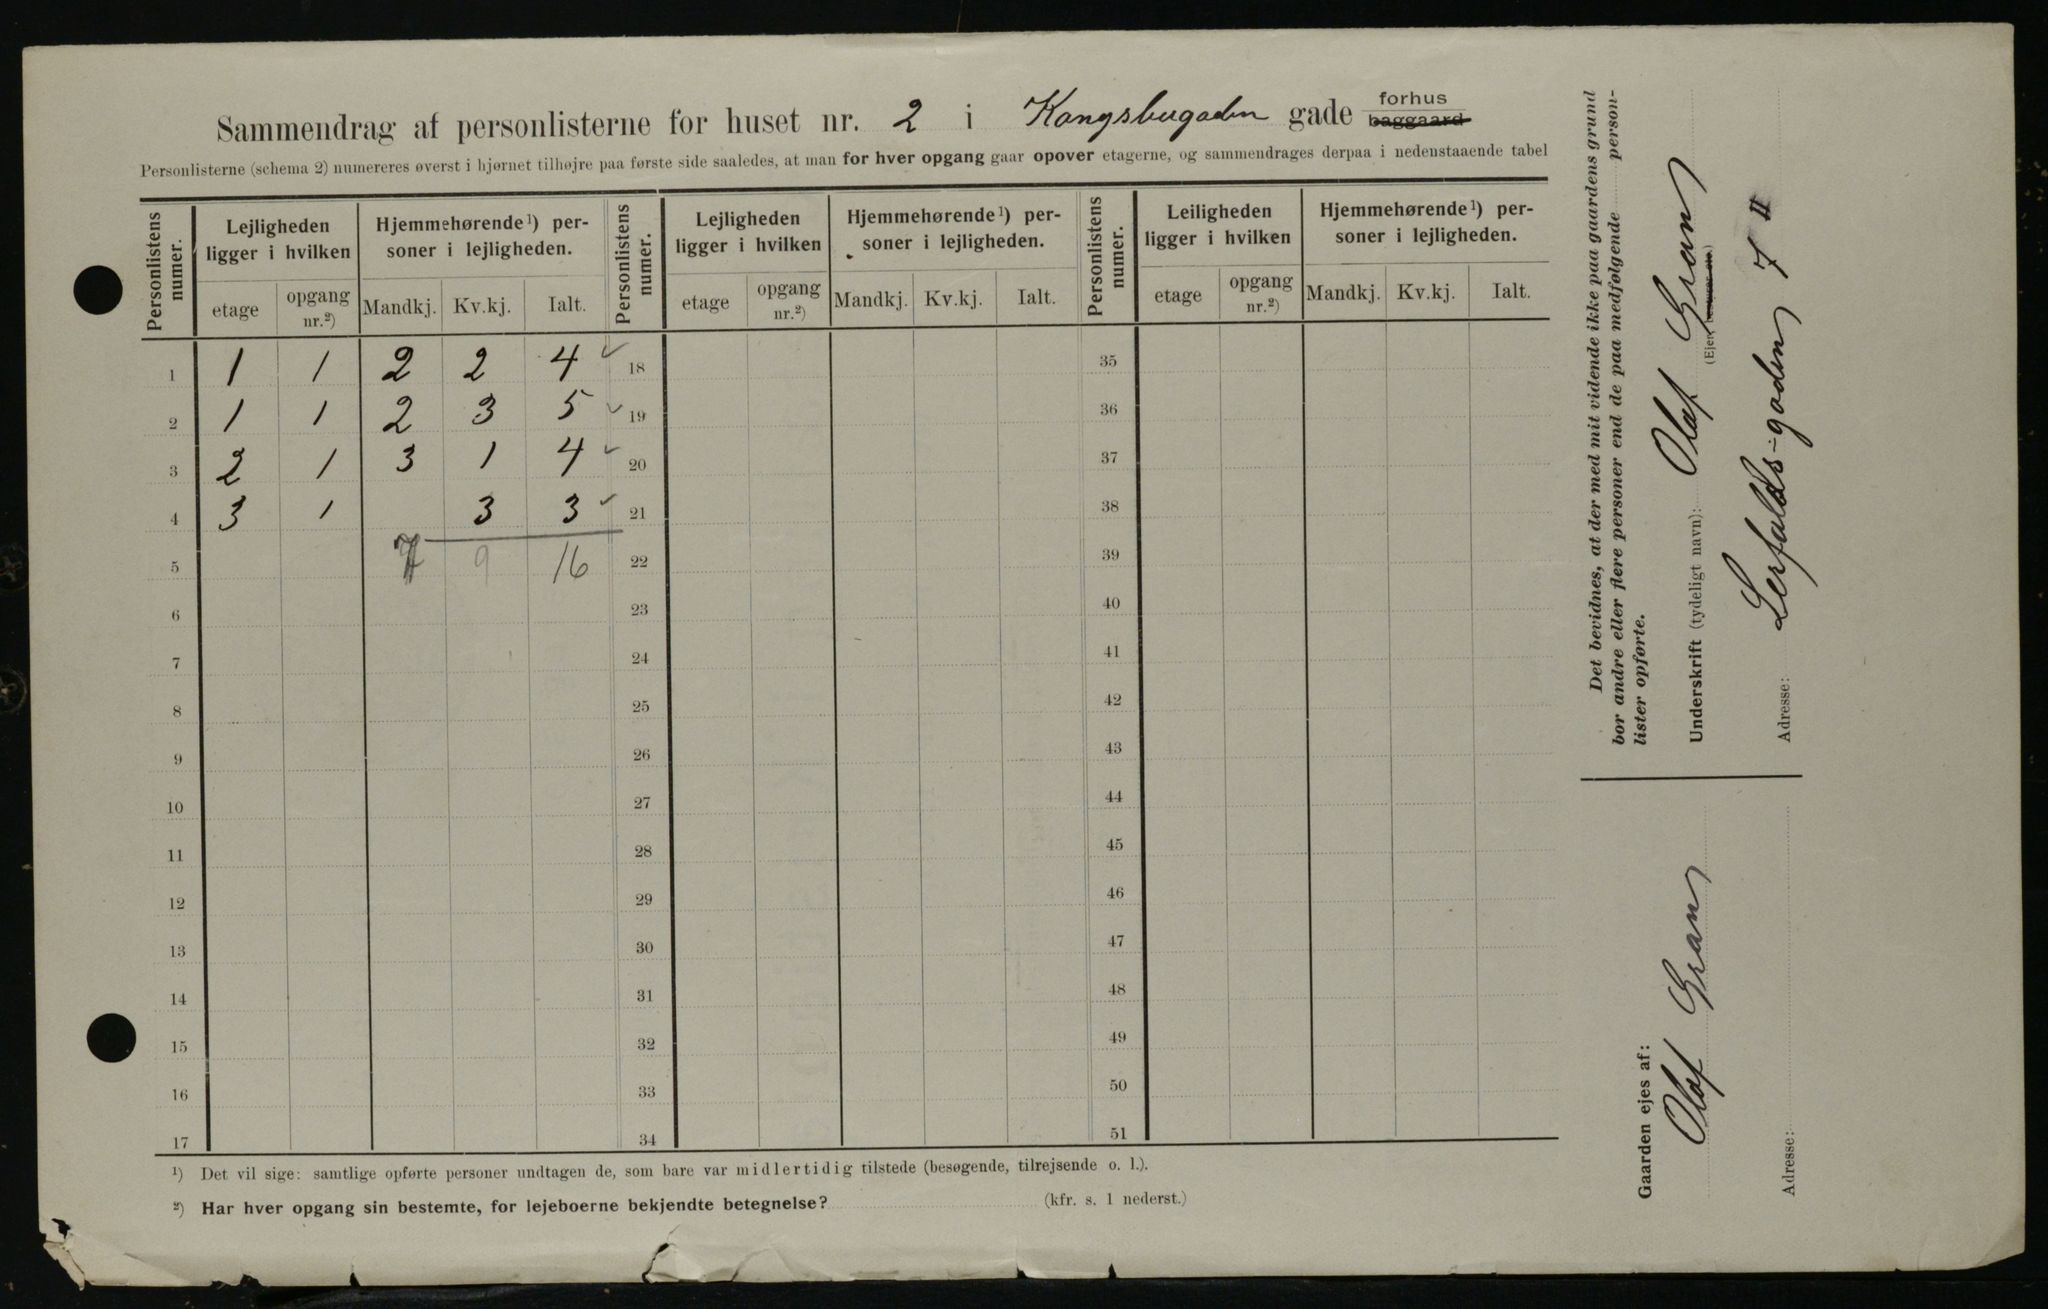 Sammendrag af personlisterne for huset nr. 2 i Kongsbergaden gade forhus baggaard
Personlisterne (schema 2) numereres øverst i hjørnet tilhøjre paa første side saaledes, at man for hver opgang gaar opover etagerne, og sammendrages derpaa i nedenstaaende tabel
Personlistens numer. Lejligheden ligger i hvilken Hjemmehørende¹) personer i lejligheden. Personlistens numer. Lejligheden ligger i hvilken Hjemmehørende¹) personer i lejligheden. Personlistens numer. Leiligheden ligger i hvilken Hjemmehørende¹) personer i lejligheden.
etage opgang nr.²) Mandkj. Kv.kj. Ialt. etage opgang nr.²) Mandkj. Kv.kj. Ialt. etage opgang nr.²) Mandkj. Kv.kj. Ialt.
1 1 1 2 2 4 ✓ 18 35
2 1 1 2 3 5 ✓ 19 36
3 2 1 3 1 4 ✓ 20 37
4 3 1 3 3 ✓ 21 38
5 7 9 16 22 39
6 23 40
7 24 41
8 25 42
9 26 43
10 27 44
11 28 45
12 29 46
13 30 47
14 31 48
15 32 49
16 33 50
17 34 51
¹) Det vil sige: samtlige opførte personer undtagen de, som bare var midlertidig tilstede (besøgende, tilrejsende o. l.).
²) Har hver opgang sin bestemte, for lejeboerne bekjendte betegnelse? (kfr. s. 1 nederst.)
Det bevidnes, at der med mit vidende ikke paa gaardens grund
bor andre eller flere personer end de paa medfølgende person-
lister opførte.
Underskrift (tydeligt navn): Olaf Gran
(Ejer, bestyrer etc.)
Adresse: Lerfalds-gaden 7 II
Gaarden ejes af:
Olaf Gran
Adresse: